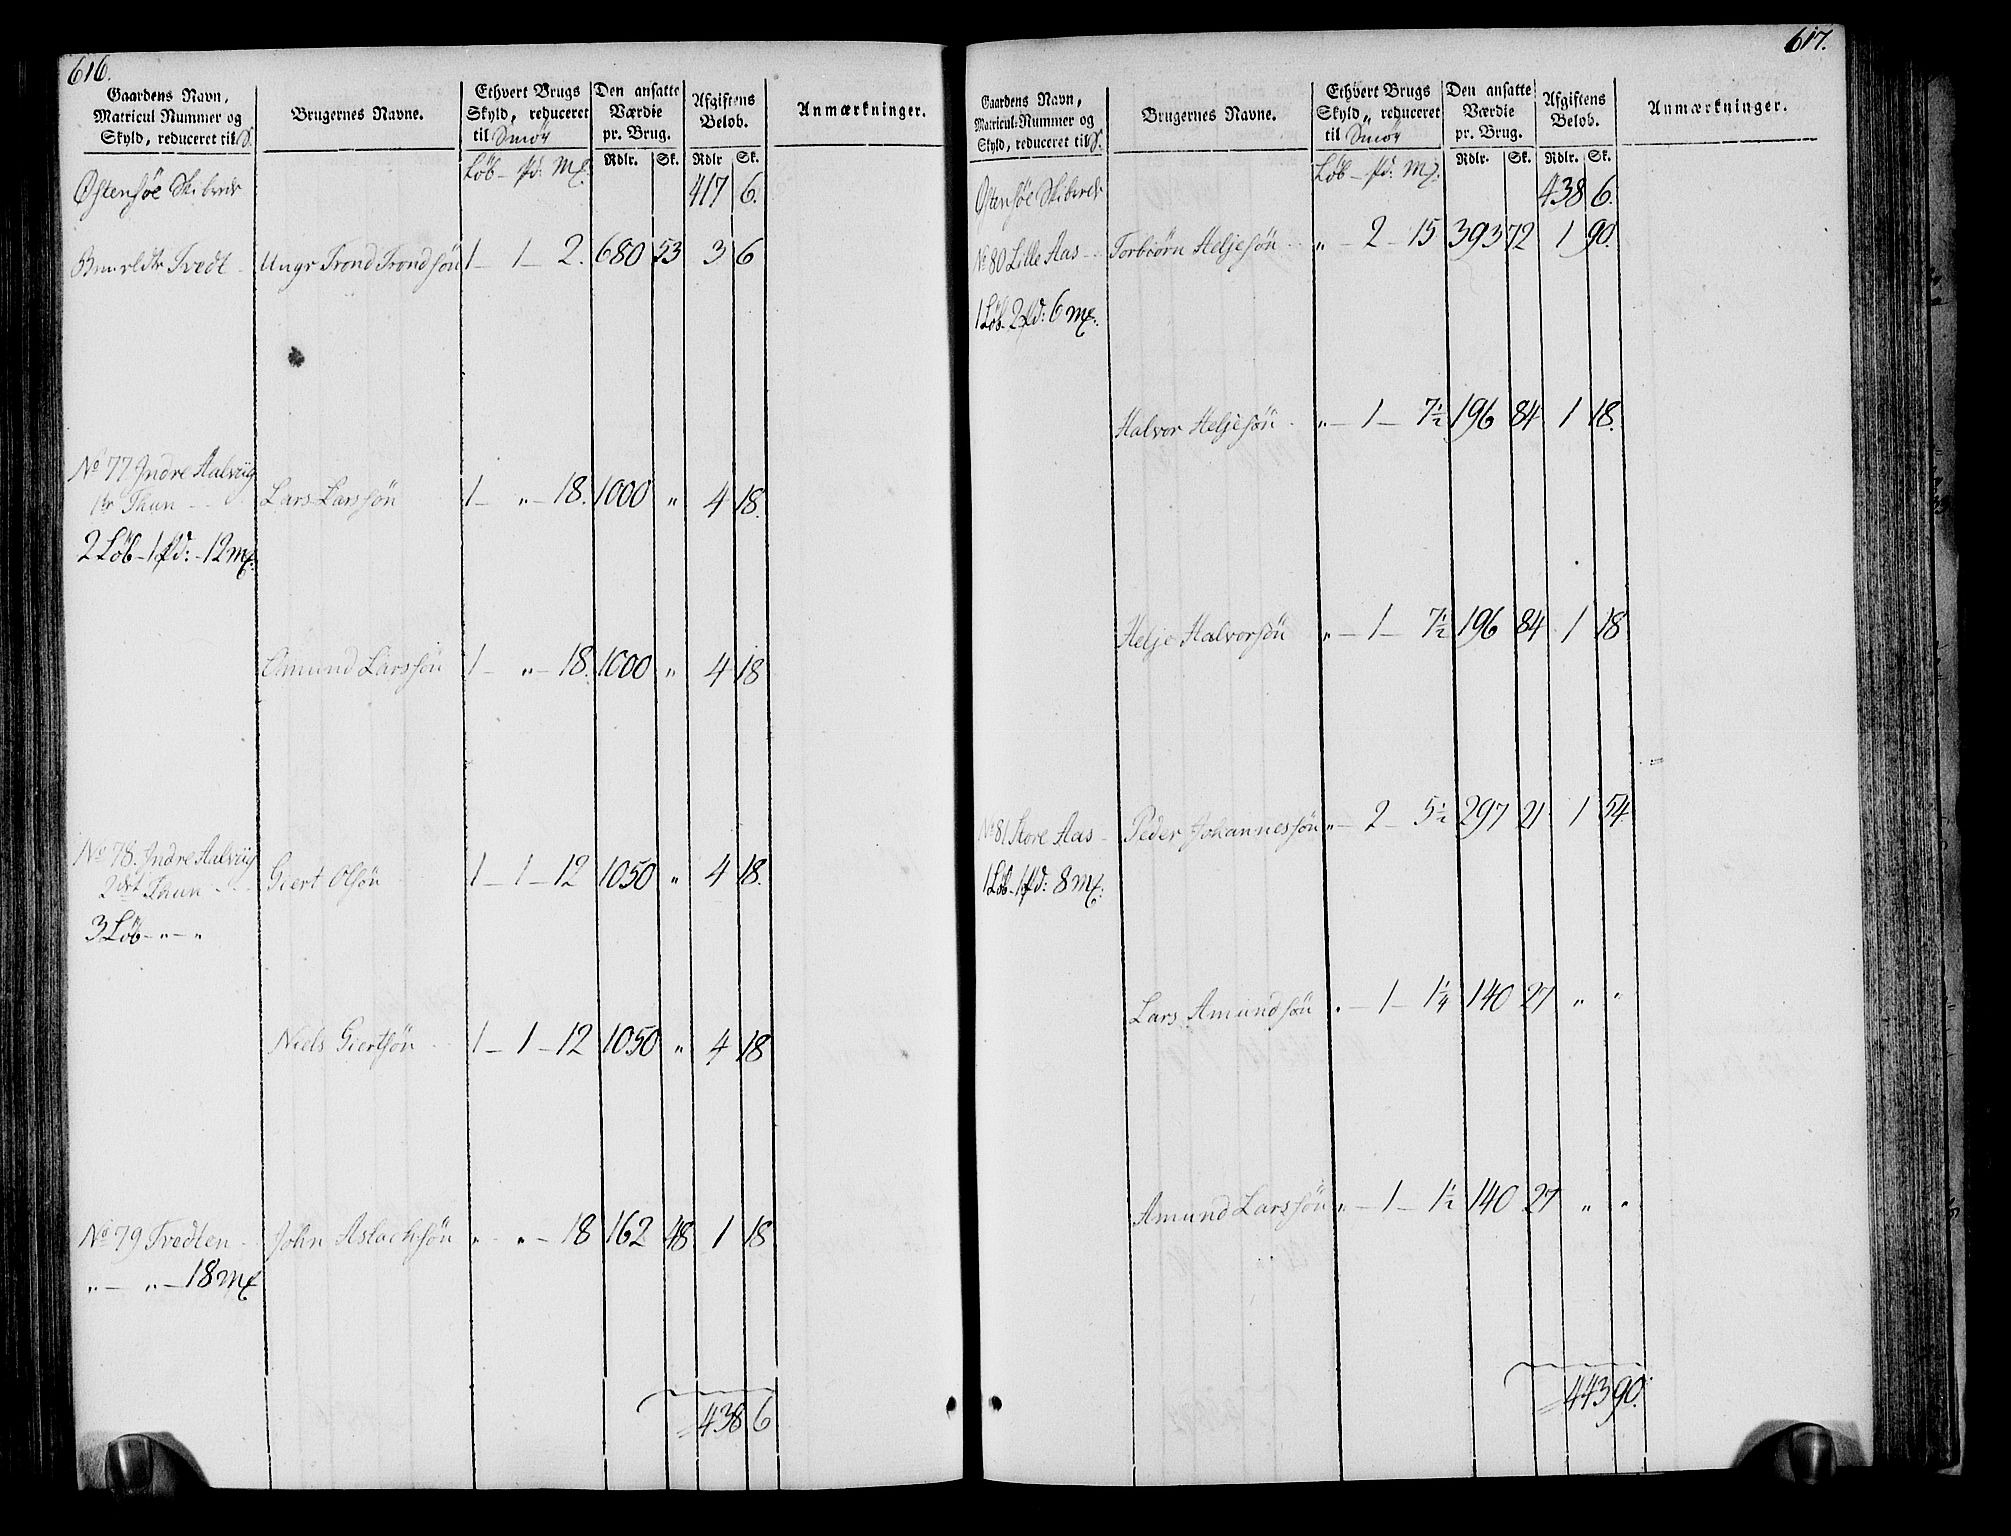 616.
Gaardens Navn, Matricul Nummer og Skyld, reduceret til S.
Brugernes Navne.
Ethvert Brugs Skyld, reduceret til Smør
Den ansatte Værdie pr. Brug.
Afgiftens Beløb.
Anmærkninger.
Løb - pd: Mk:
Rdlr. Sk. Rdlr Sk.
Østensøe Skibrede 417 6.
Tvedt - Unge Trond Trondsøn 1 - 1 - 2. 680 53 3 6
No 77 Indre Aalviig
1te Thun - - Lars Larssøn 1 - " - 18. 1000 " 4 18.
2 Løb - 1 pd: - 12 Mk:
Amund Larssøn 1 - " - 18. 1000 " 4 18
No 78. Indre Aalviig
2det Thun - - Giert Olsøn 1 - 1 - 12 1050 " 4 18.
3 Løb - " - "
Niels Giertsøn 1 - 1 - 12 1050 " 4 18
No 79 Tvedten - John Aslachsøn " - " - 18 162 48 1 18
" - " - 18 Mk
438 6
617.
Gaardens Navn, Matricul-Nummer og Skyld, reduceret til S.
Brugernes Navne.
Ethvert Brugs Skyld, reduceret til Smør
Den ansatte Værdie pr. Brug.
Afgiftens Beløb.
Anmærkninger.
Løb - pd: Mk:
Rdlr. Sk. Rdlr. Sk.
Østensøe Skibrede 438 6.
No 80 Lille Aas - - Torbiørn Heljesøn - " - 2 - 15 393 72 1 90.
1 Løb - 2 pd: 6 Mk:
Halvor Heljesøn - " - 1 - 7½ 196 84 1 18.
Helje Halvorsøn " - 1 - 7½ 196 84 1 18
No 81 Store Aas - Peder Johannessøn " - 2 - 5½ 297 21 1 54
1 Løb - 1 pd: 8 Mk:
Lars Amundsøn " - 1 - 1¼ 140 27 " "
Amund Larssøn " - 1 - 1½ 140 27 " "
443 90.